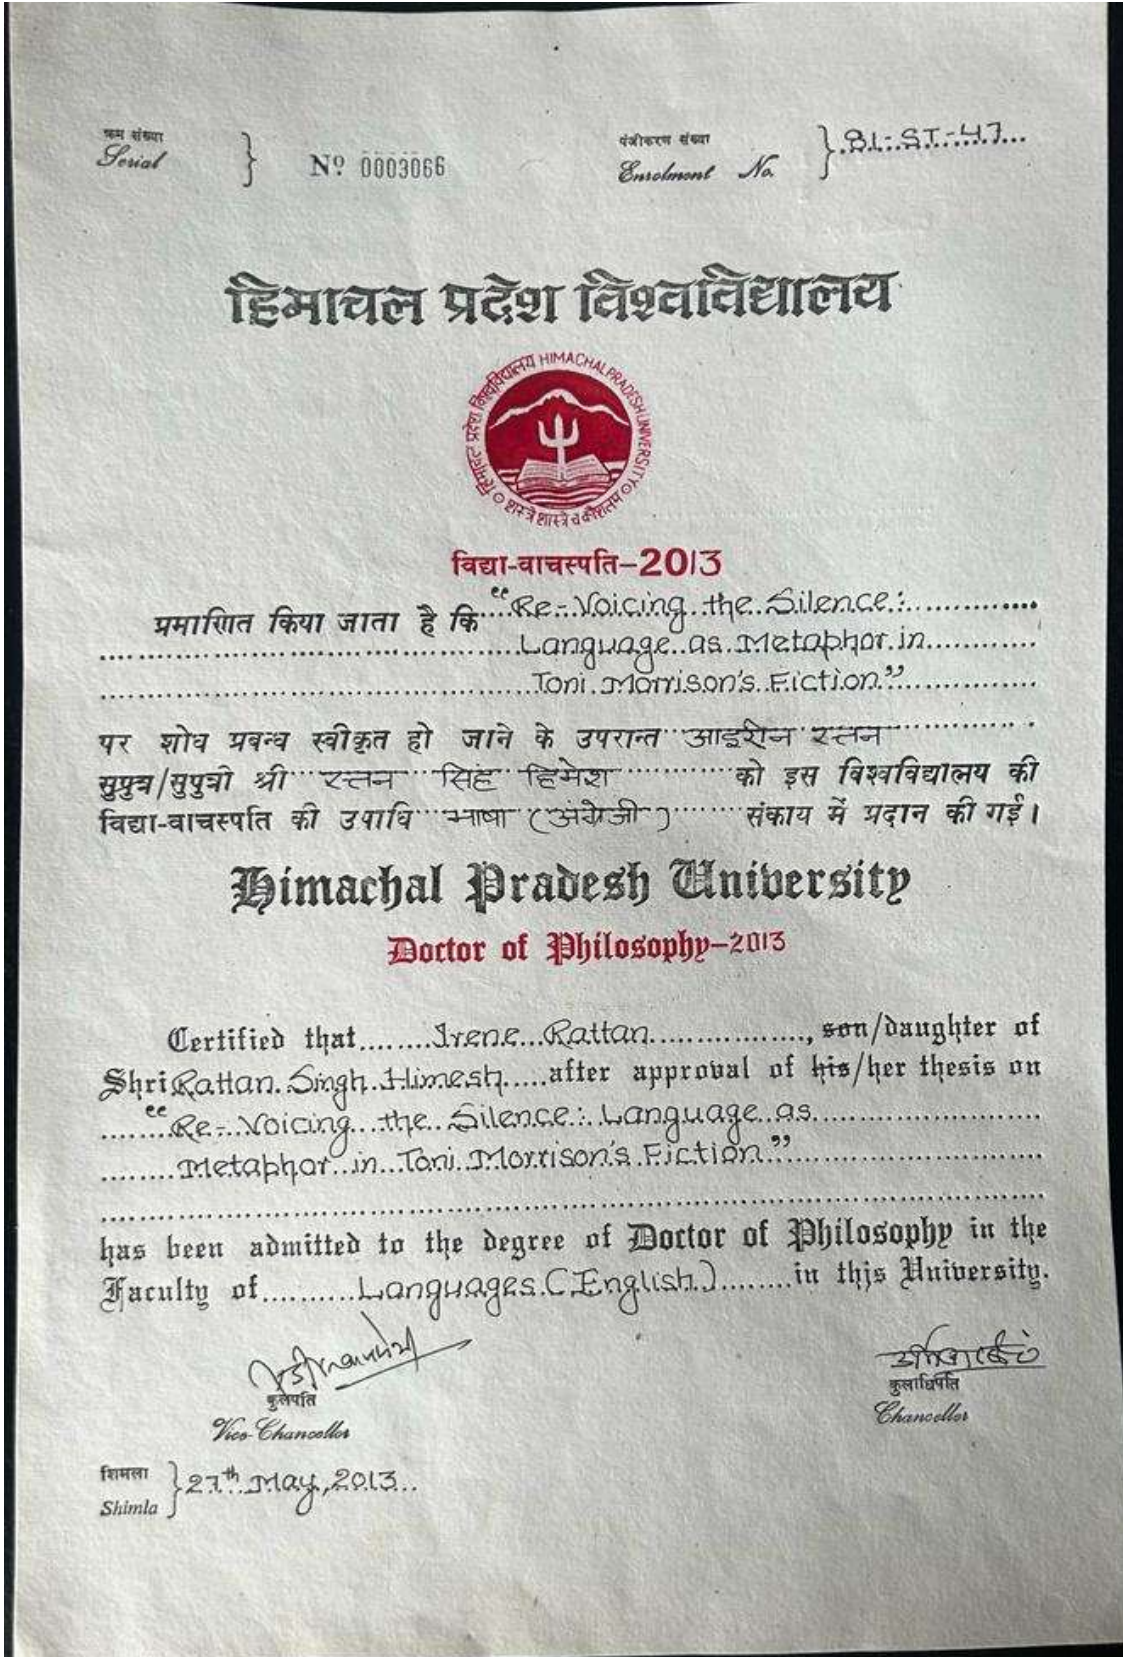 क्रम संख्या
Serial
} Nº 0003066
पंजीकरण संख्या
Enrolment No.
} 81-ST-47
हिमाचल प्रदेश विश्वविद्यालय
हिमाचल प्रदेश विश्वविद्यालय HIMACHAL PRADESH UNIVERSITY
शस्त्रे शास्त्रे च कौशलम्
विद्या-वाचस्पति–2013
प्रमाणित किया जाता है कि “Re-Voicing the Silence:
Language as Metaphor in
Toni Morrison's Fiction”
पर शोध प्रबन्ध स्वीकृत हो जाने के उपरान्त आइरीन रत्तन
सुपुत्र/सुपुत्री श्री रत्तन सिंह हिमेश को इस विश्वविद्यालय की
विद्या-वाचस्पति की उपाधि भाषा (अंग्रेजी) संकाय में प्रदान की गई।
Himachal Pradesh University
Doctor of Philosophy–2013
Certified that Irene Rattan, son/daughter of
Shri Rattan Singh Himesh after approval of his/her thesis on
“Re-Voicing the Silence: Language as
Metaphor in Toni Morrison's Fiction”
has been admitted to the degree of Doctor of Philosophy in the
Faculty of Languages (English) in this University.
कुलपति
Vice-Chancellor
कुलाधिपति
Chancellor
शिमला
Shimla
} 27th May, 2013